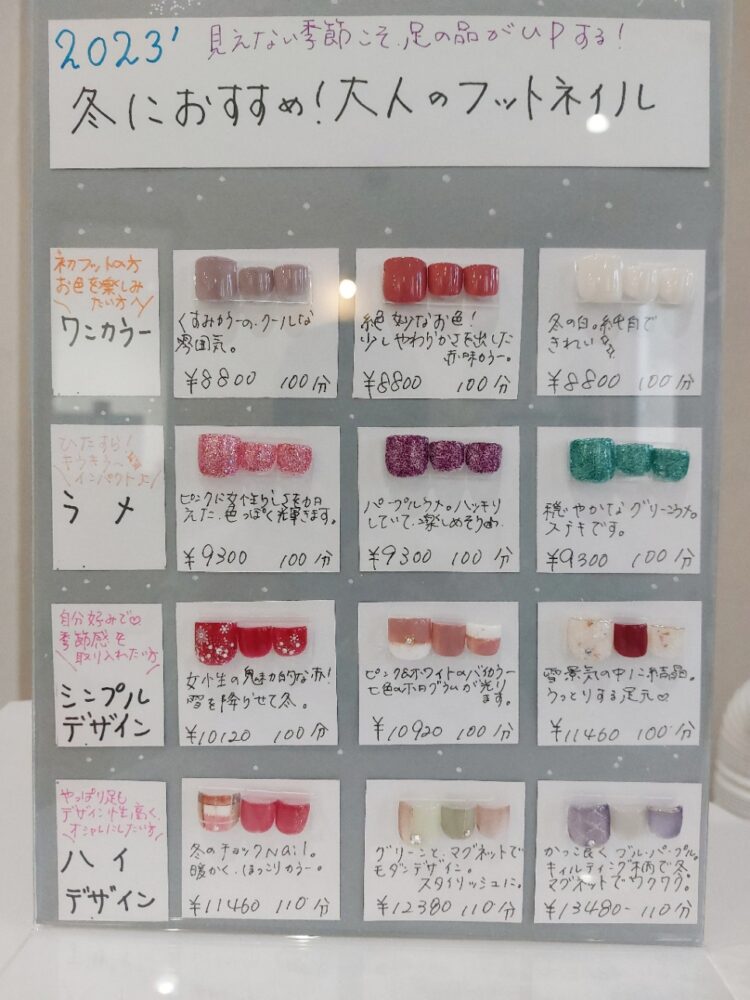 2023' 見えない季節こそ、足の品がUPする!
冬におすすめ!大人のフットネイル
初フットの方
お色を楽しみ
たい方へ
ワンカラー
くすみカラーの、クールな
雰囲気。
¥8800 100分
絶妙なお色!
少しやわらかさを出した
赤味カラー。
¥8800 100分
冬の白。純白で
きれい
¥8800 100分
ひたすら!
キラキラ〜
インパクト
ラメ
ピンクに女性らしさを加
えた、色っぽく輝きます。
¥9300 100分
パープルラメ。ハッキリ
していて、楽しめそう
¥9300 100分
穏やかなグリーンラメ。
ステキです。
¥9300 100分
自分好みで♡
季節感を
取り入れたい方
シンプル
デザイン
女性の魅力的な赤!
雪を降らせて冬。
¥10120 100分
ピンク&ホワイトのバイカラー
七色のホログラムが光り
ます。
¥10920 100分
雪景気の中に結晶。
うっとりする足元♡
¥11460 100分
やっぱり足も
デザイン性高く、
オシャレにしたい方
ハイ
デザイン
冬のチェックNail。
暖かく、ほっこりカラー。
¥11460 110分
グリーンと、マグネットで
モダンデザイン。
スタイリッシュに。
¥12380 110分
かっこ良く ブルーパープル。
キィルティング柄で冬。
マグネットでワクワク。
¥13480- 110分